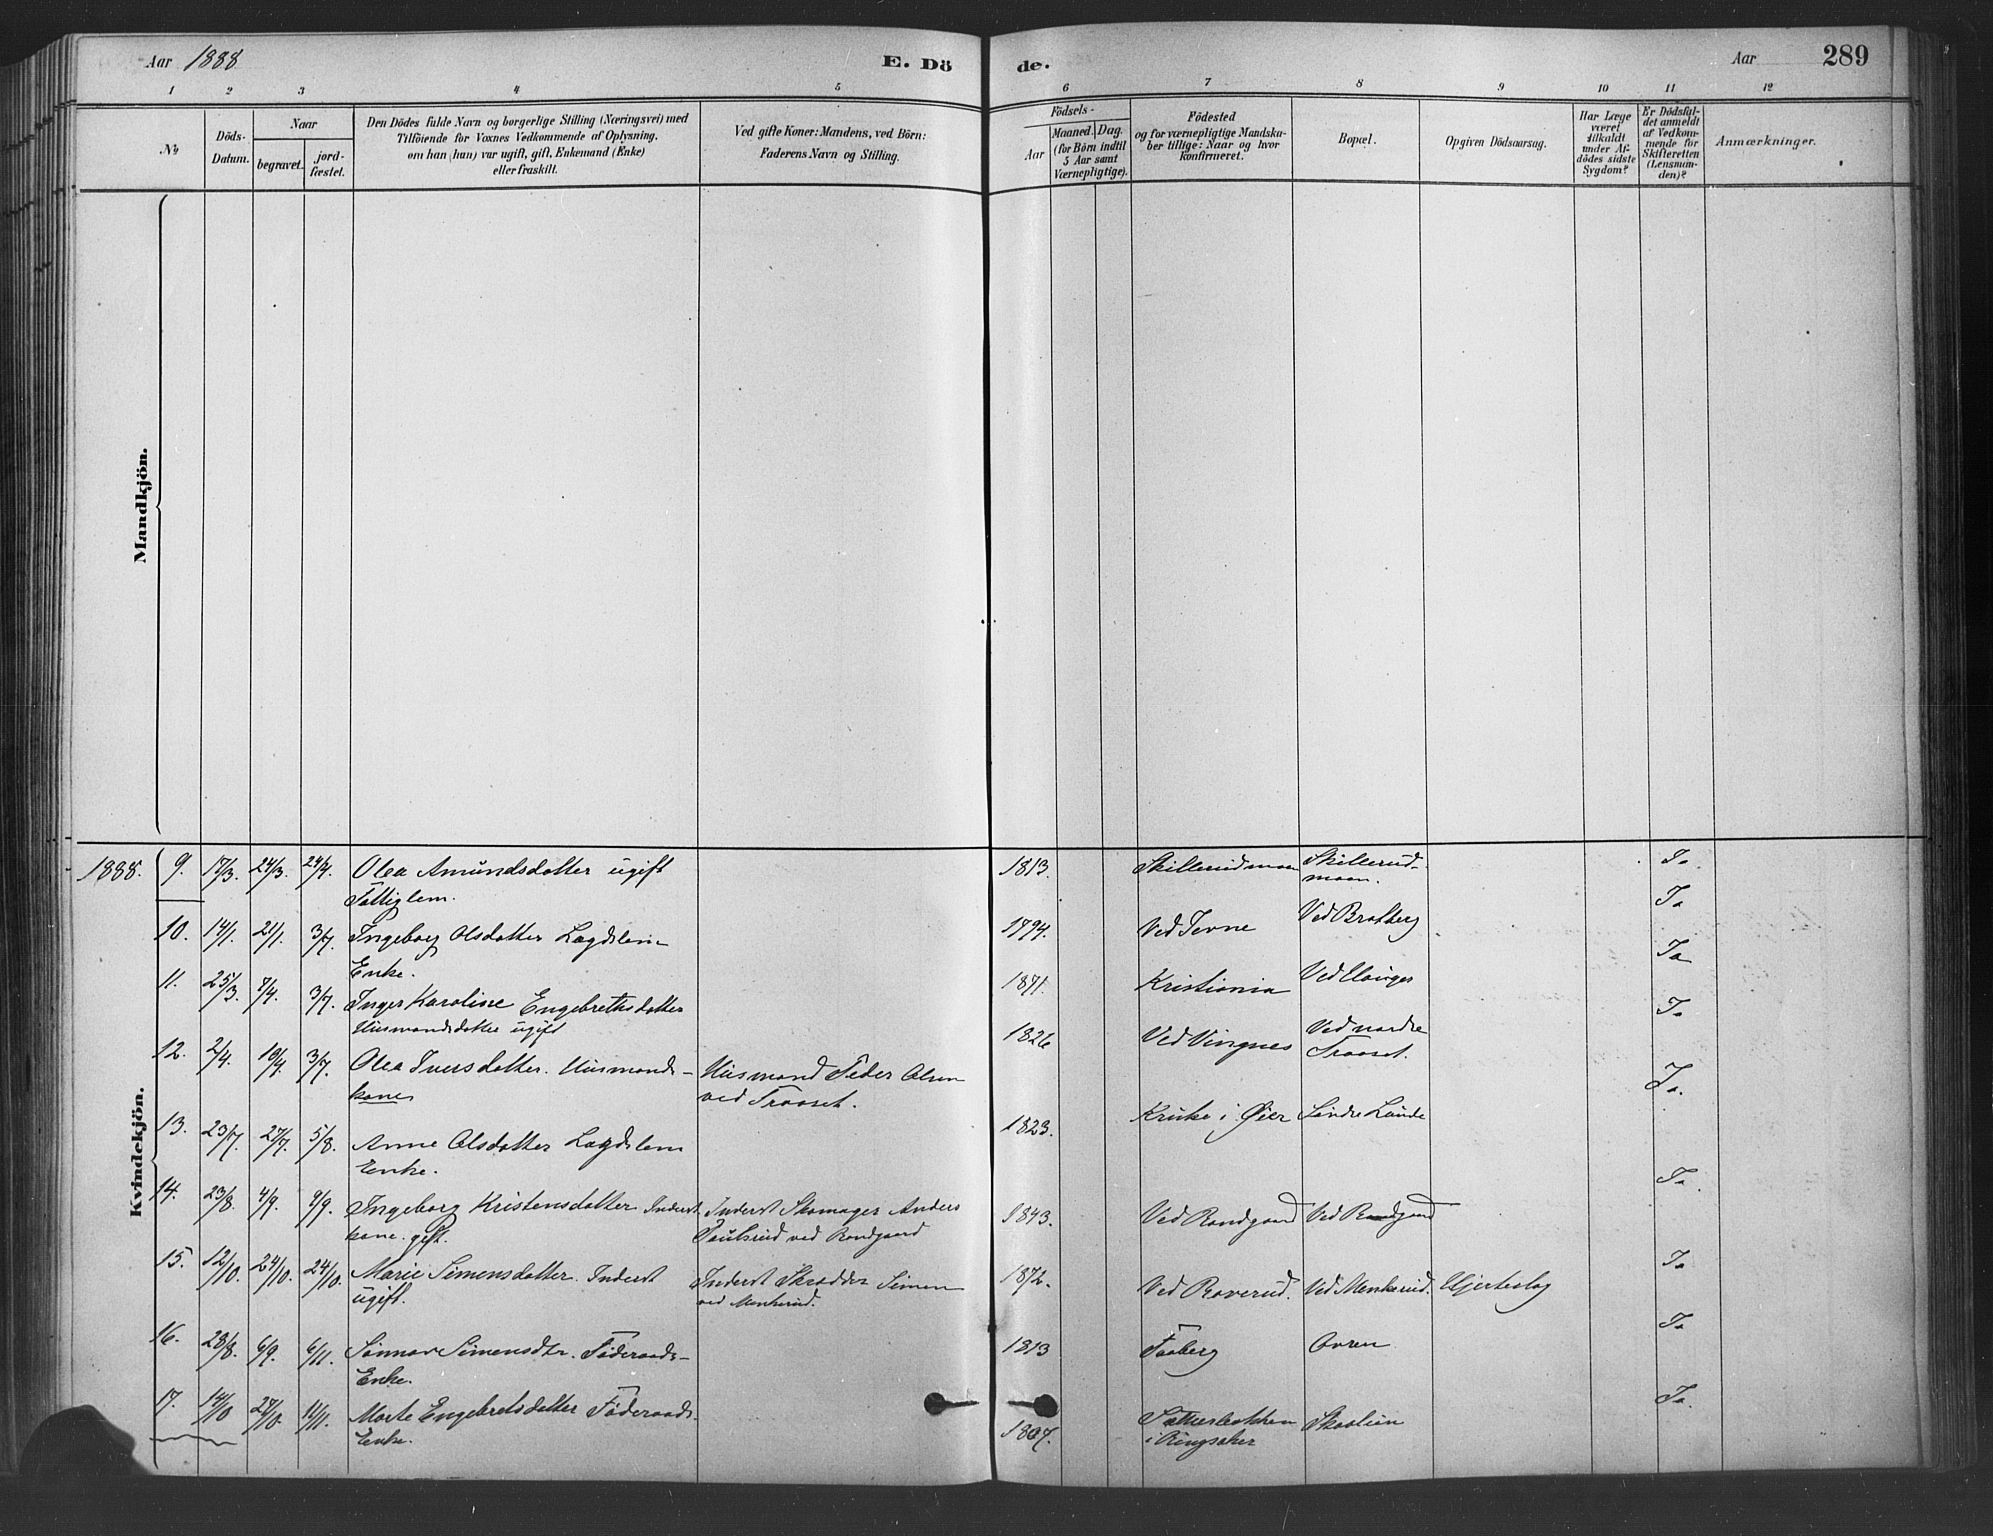 Aar 1888 E. Dö de. Aar 289
1 2 3 4 5 6 7 8 9 10 11 12
No
Döds-
Datum.
Naar
begravet.
jord-
fæstet.
Den Dödes fulde Navn og borgerlige Stilling (Næringsvei) med
Tilföiende for Voxnes Vedkommende af Oplysning,
om han (hun) var ugift, gift, Enkemand (Enke)
eller fraskilt.
Ved gifte Koner: Mandens, ved Börn:
Faderens Navn og Stilling.
Födsels-
Aar
Maaned. Dag.
(for Börn indtil
5 Aar samt
Værnepligtige).
Födested
og for værnepligtige Mandska-
ber tillige: Naar og hvor
konfirmeret.
Bopæl.
Opgiven Dödsaarsag.
Har Læge
været
tilkaldt
under Af-
dödes sidste
Sygdom?
Er Dödsfal-
det anmeldt
af Vedkom-
mende for
Skifteretten
(Lensman-
den)?
Anmærkninger.
Mandkjön.
Kvindekjön.
1888. 9. 17/3. 24/3. 24/4. Olea Amundsdatter ugift 1813. Skillerudmoen Skillerud- Ja
Fattiglem. moen.
10. 14/1. 21/1. 3/7. Ingeborg Olsdatter Lægdslem 1794. Ved Terne Ved Brotberg Ja
Enke.
11. 25/3. 7/4. 3/7. Inger Karoline Engebrethsdatter 1871. Kristiania Ja
Husmandsdatter ugift
12. 2/4. 10/4. 3/7. Olea Iversdatter. Husmands- Husmand Peder Olsen 1826 Ved Vingnes Ved nordre Ja
kone ved Traaset. Traaset.
13. 23/7. 27/7. 5/8. Anne Olsdatter Lægdslem 1823. Kruke i Øier Søndre Lunde Ja.
Enke.
14. 23/8. 4/9. 9/9. Ingeborg Kristensdatter Inderst Inderst Skomager Anders 1843. Ved Rondgaard Ved Rondgaard Ja
kone. gift. Paulsrud ved Rondgaard
15. 12/10. 24/10. 24/10. Marie Simensdatter. Inderst Inderst Skrædder Simen 1872. Ved Roverud. Ved Menkerud. Hjerteslag Ja
ugift. ved Menkerud.
16. 28/8. 6/9. 6/11. Simensdtr. Föderaads- 1813 Faaberg Ovren Ja
Enke.
17. 14/10 27/10. 11/11. Marte Engebretsdatter Föderaads. 1807. Skaalien Ja.
Enke. i Ringsaker